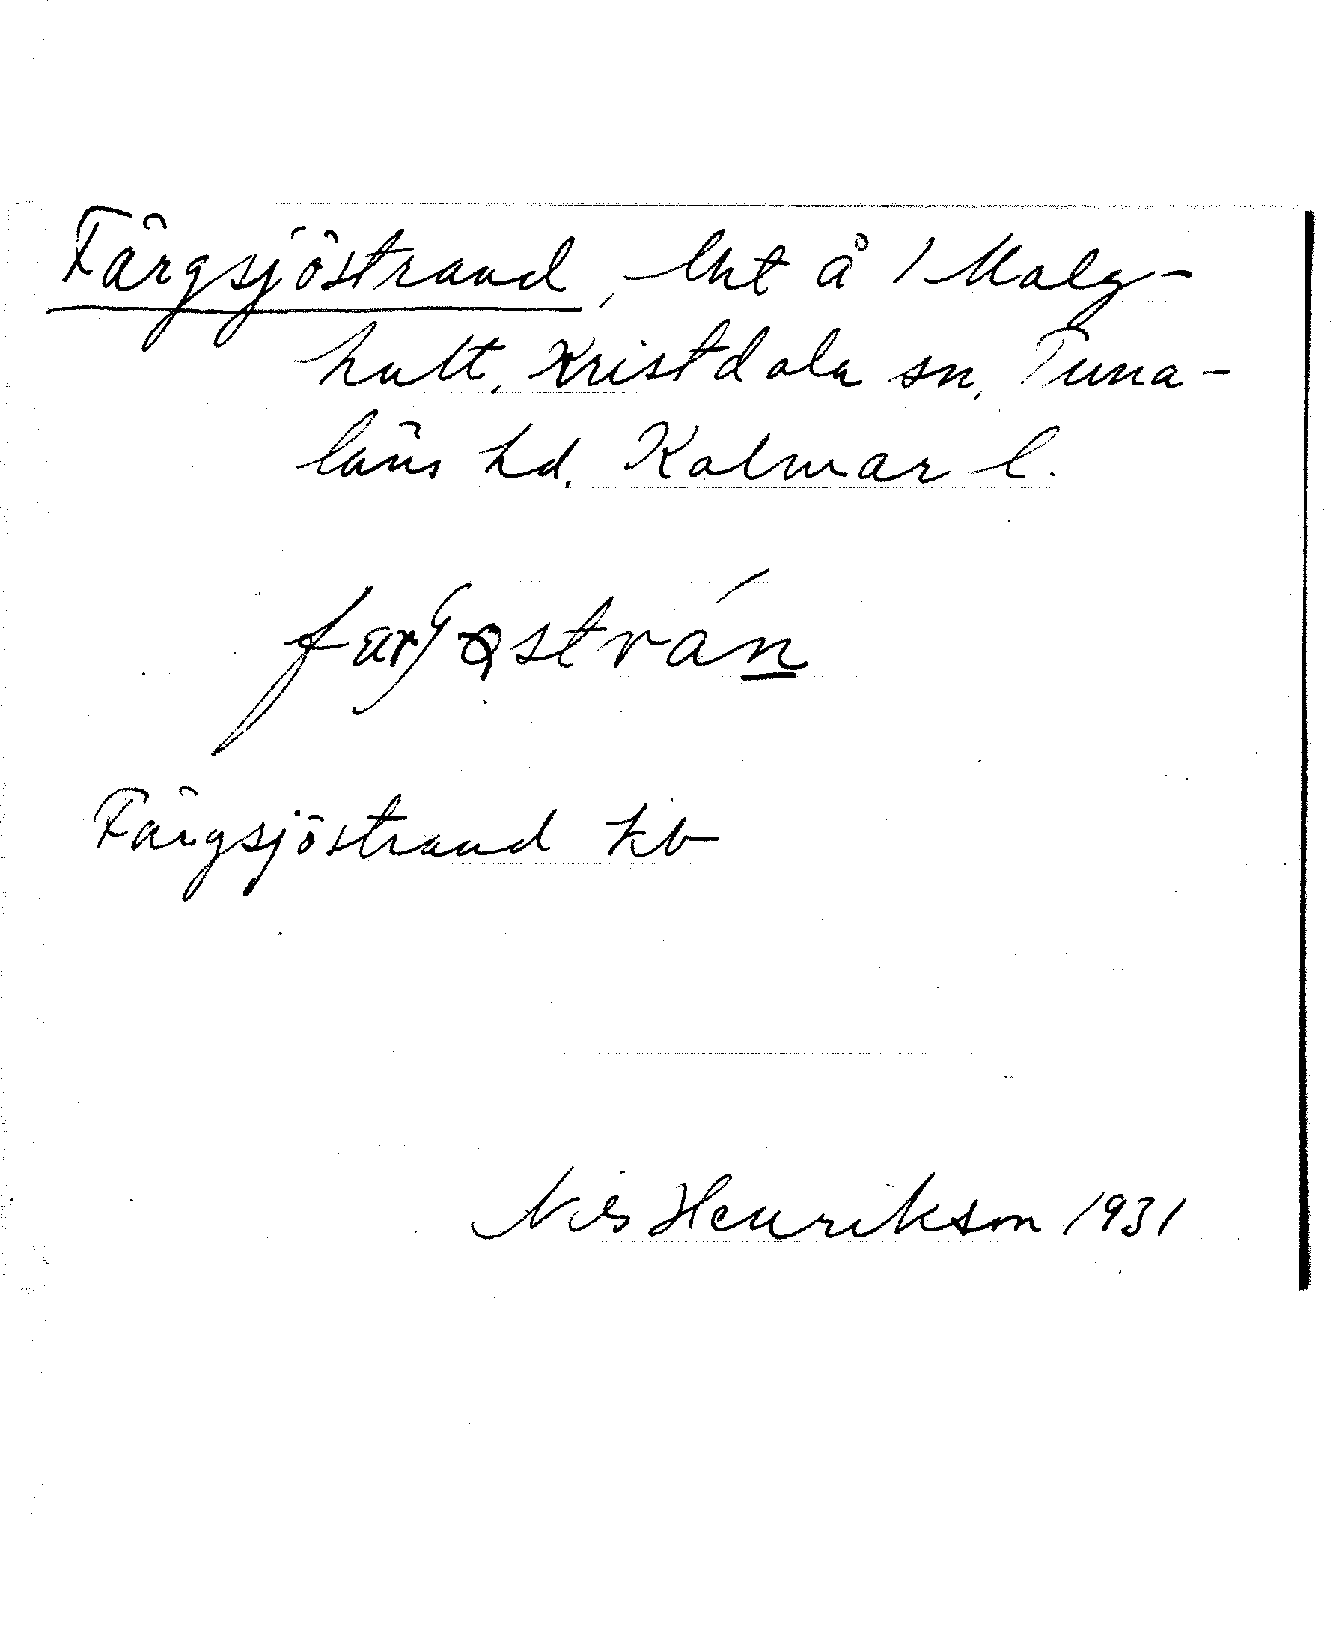 Färgsjöstrand, lht å 1 Malg-
hult, Kristdala sn, Tuna-
läns hd, Kalmar l.
Färgsjöstrand kb
Nils Henrikson 1931